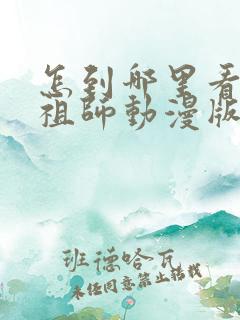 怎到哪里看
祖師動漫版
班德哈瓦
未经同意禁止转载